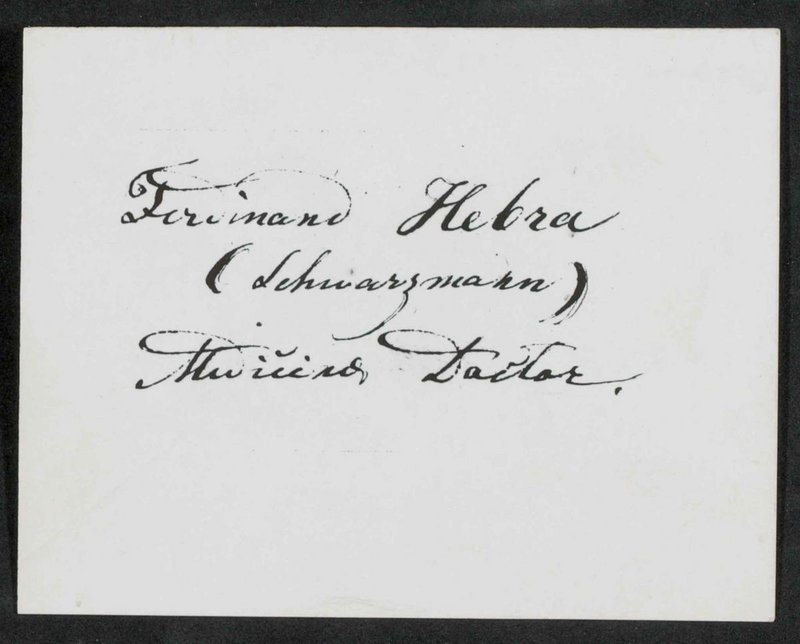 Ferdinand Hebra
(Schwarzmann)
Medicinæ Doctor.